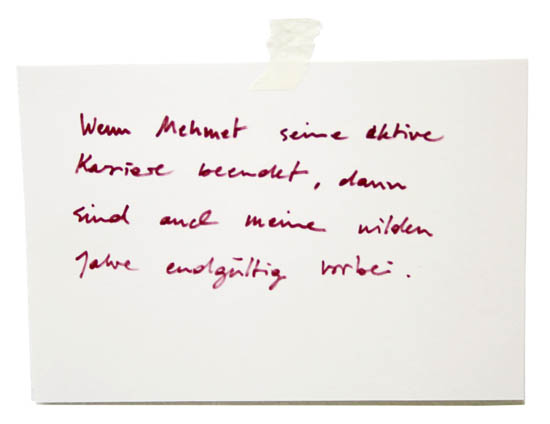 Wenn Mehmet seine aktive
Karriere beendet, dann
sind auch meine wilden
Jahre endgültig vorbei.